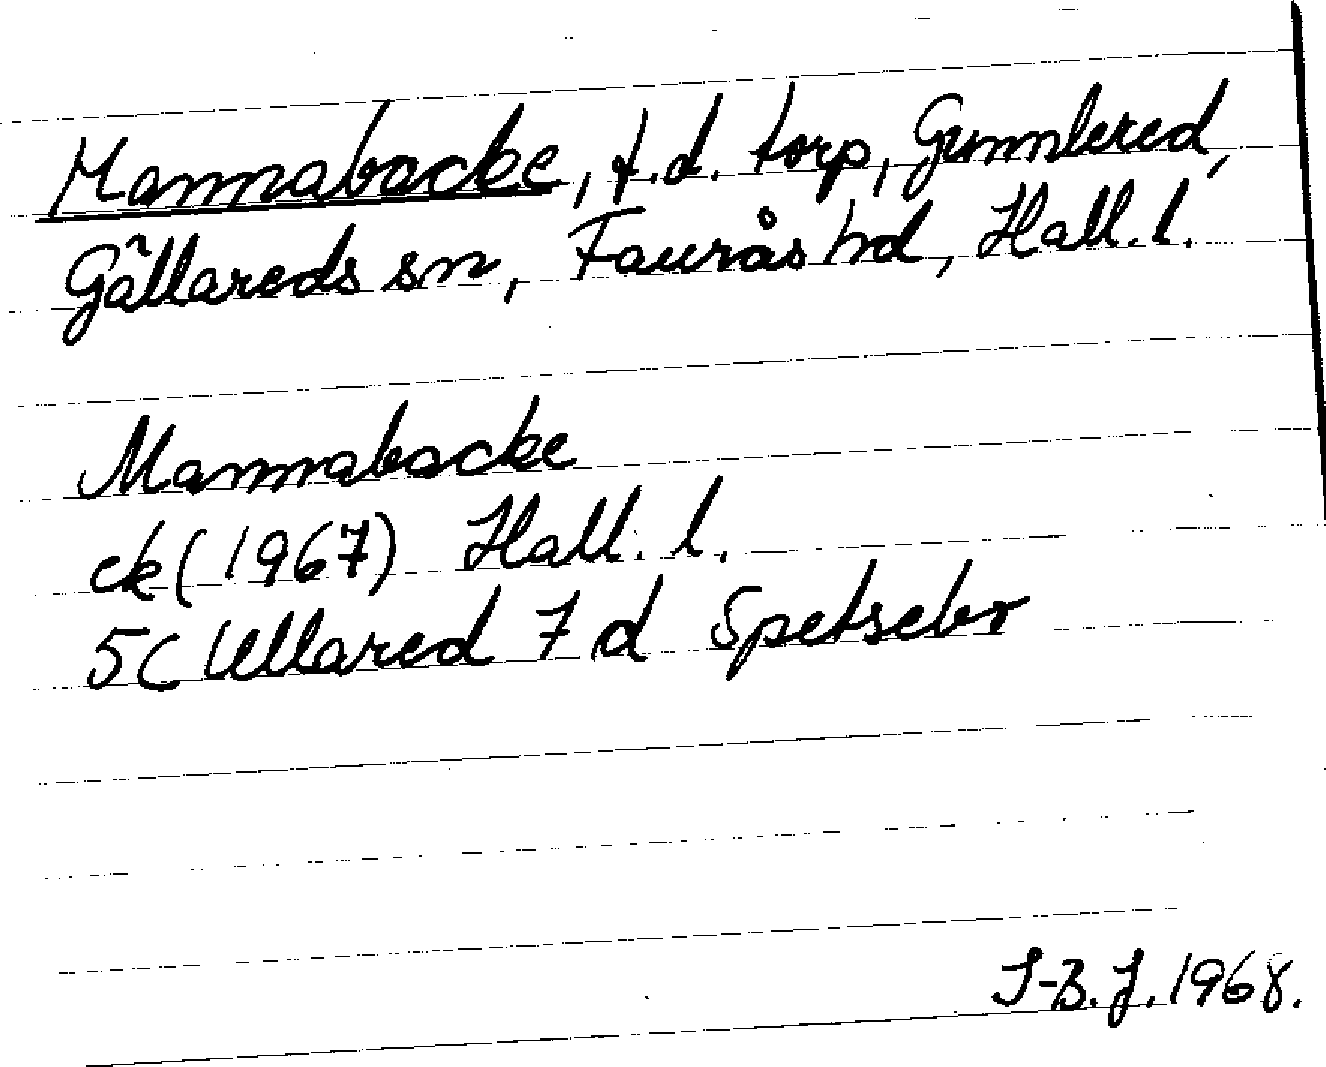 Mannabacke, f.d. torp, Gunnlered,
Gällareds sn, Faurås hd, Hall. l.
Mannabacke
ek (1967) Hall. l.
5C Ullared 7 d Spetsebr
I-B. J. 1968.